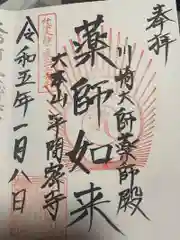 奉拝
川崎大師薬師殿
薬師如来
大本山平間寺
令和五年一月八日